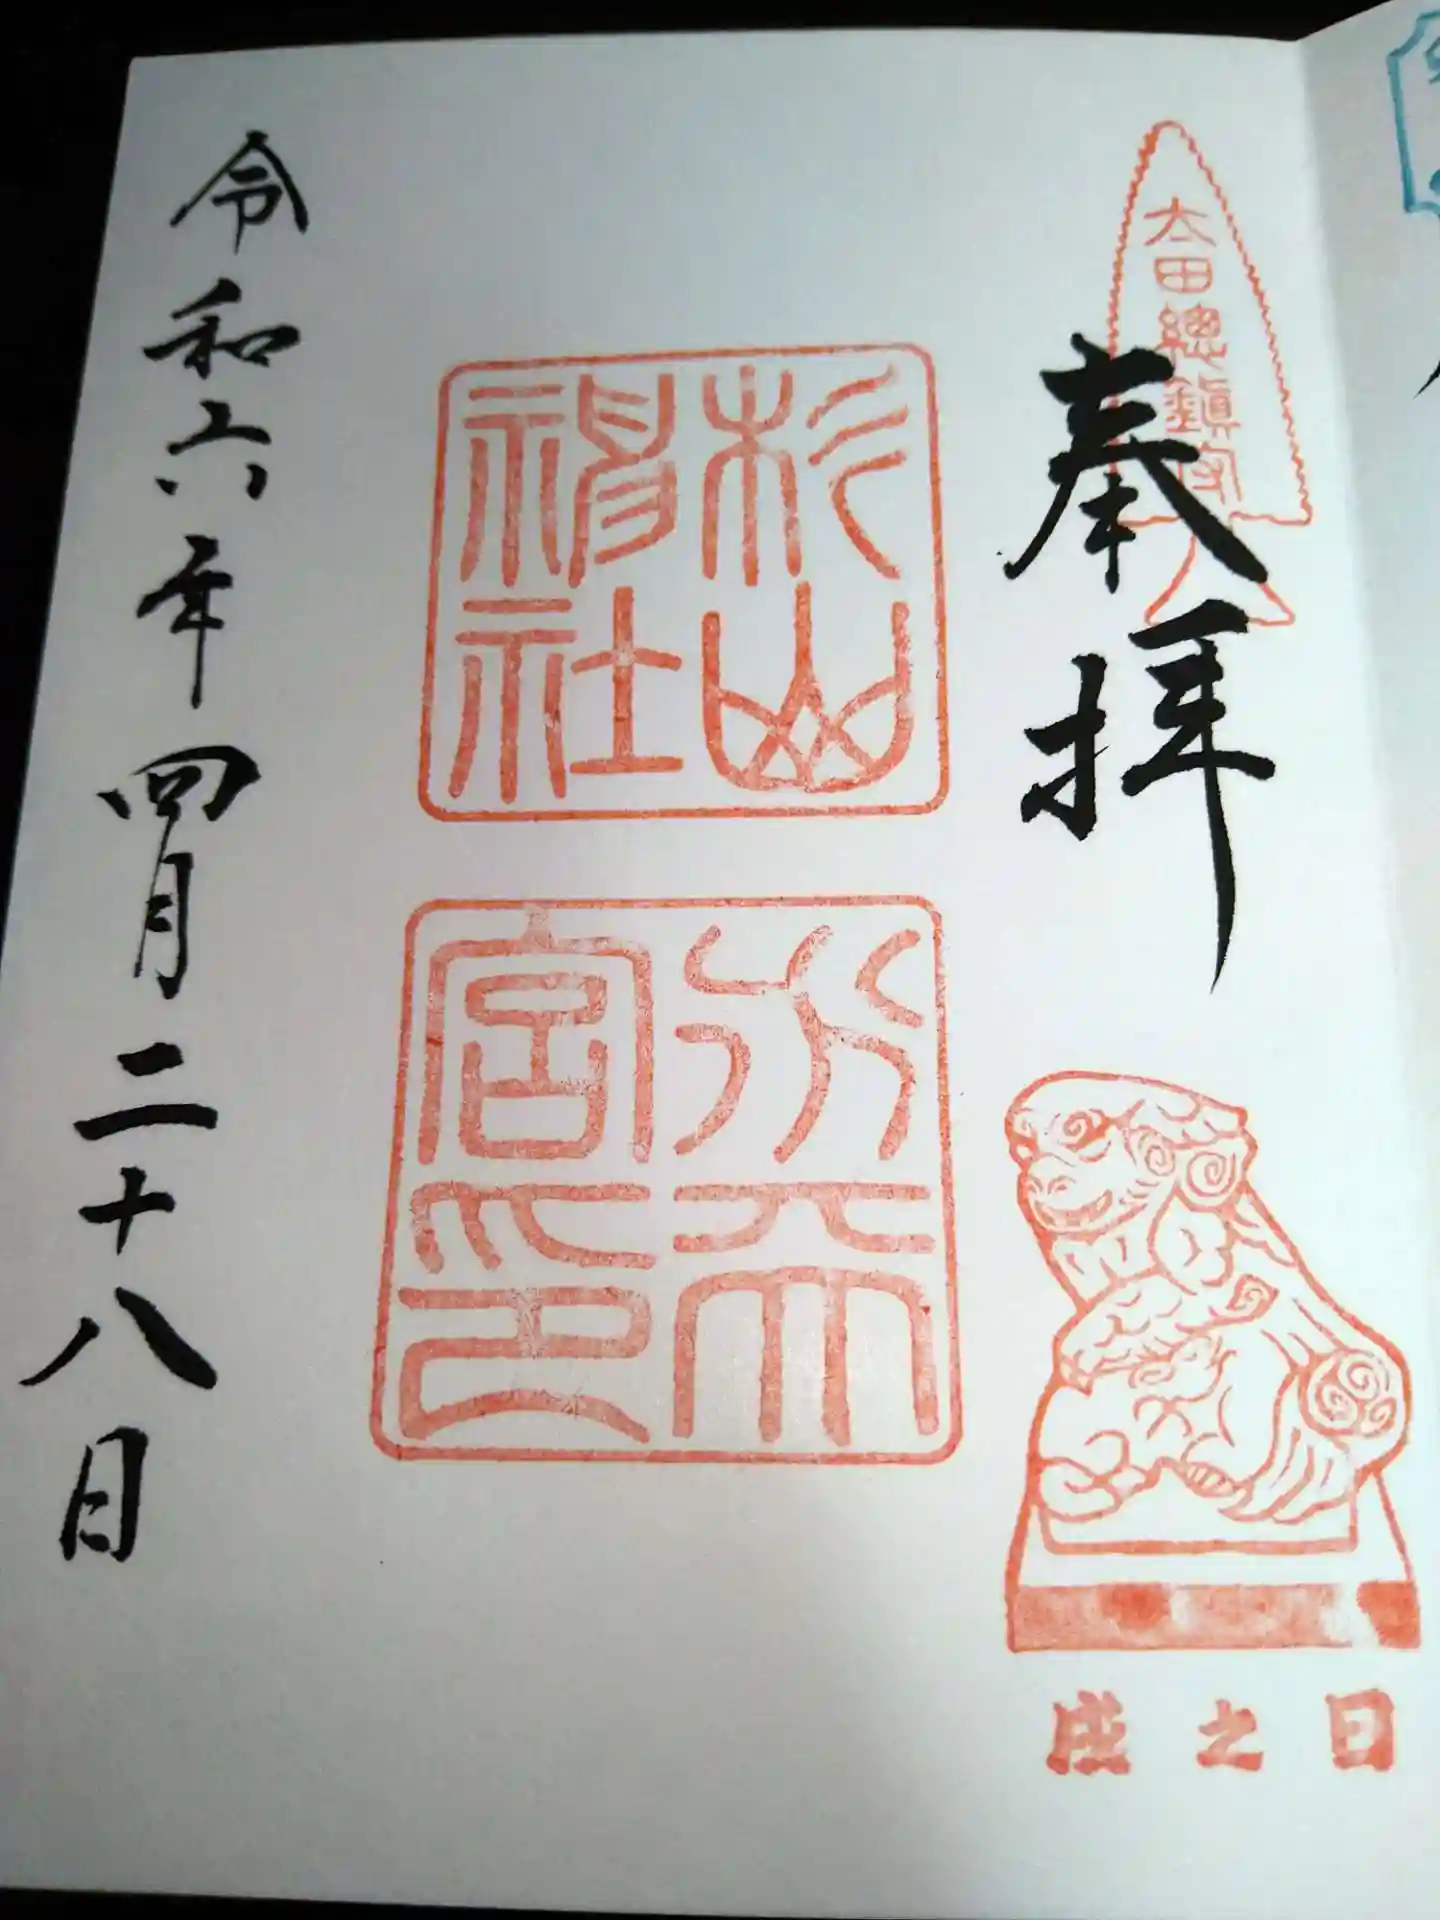 太田總鎮守
奉拝
杉山
神社
水天
宮印
戌之日
令和六年四月二十八日